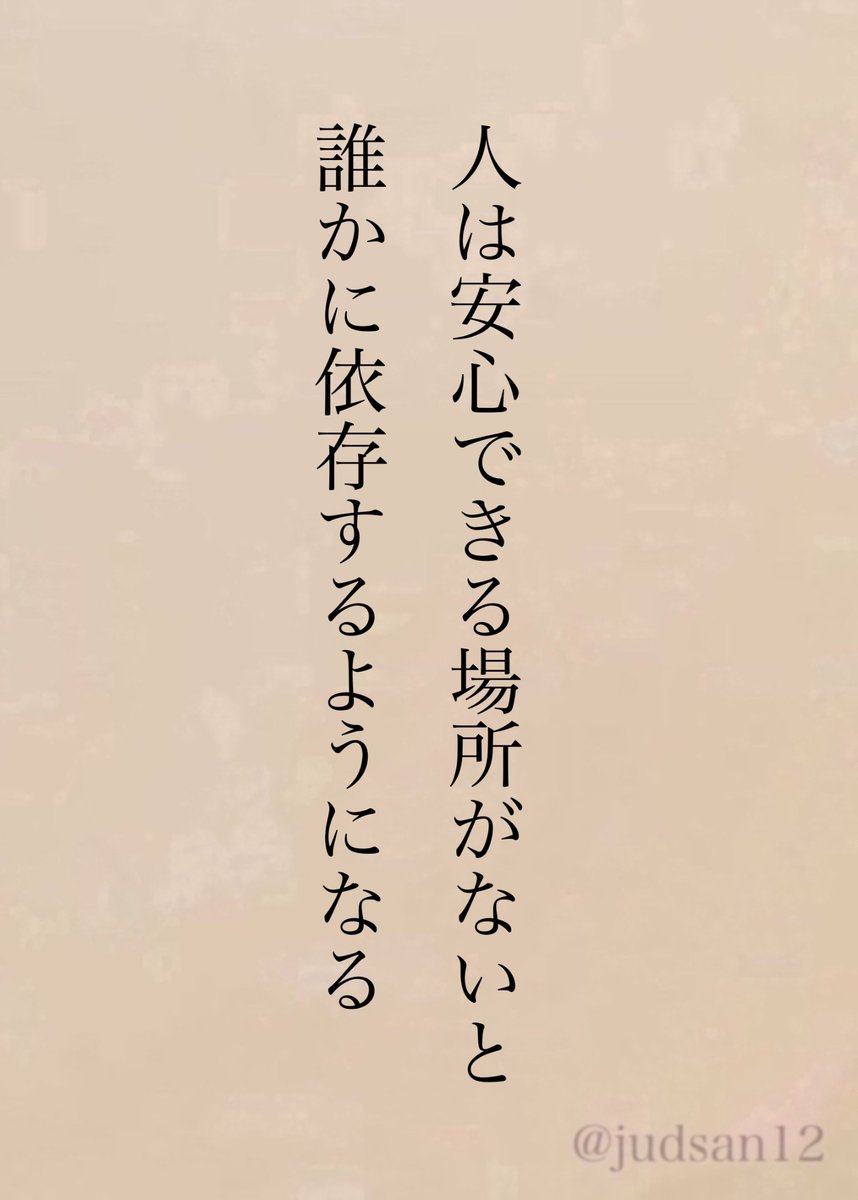 人は安心できる場所がないと
誰かに依存するようになる
@judsan12